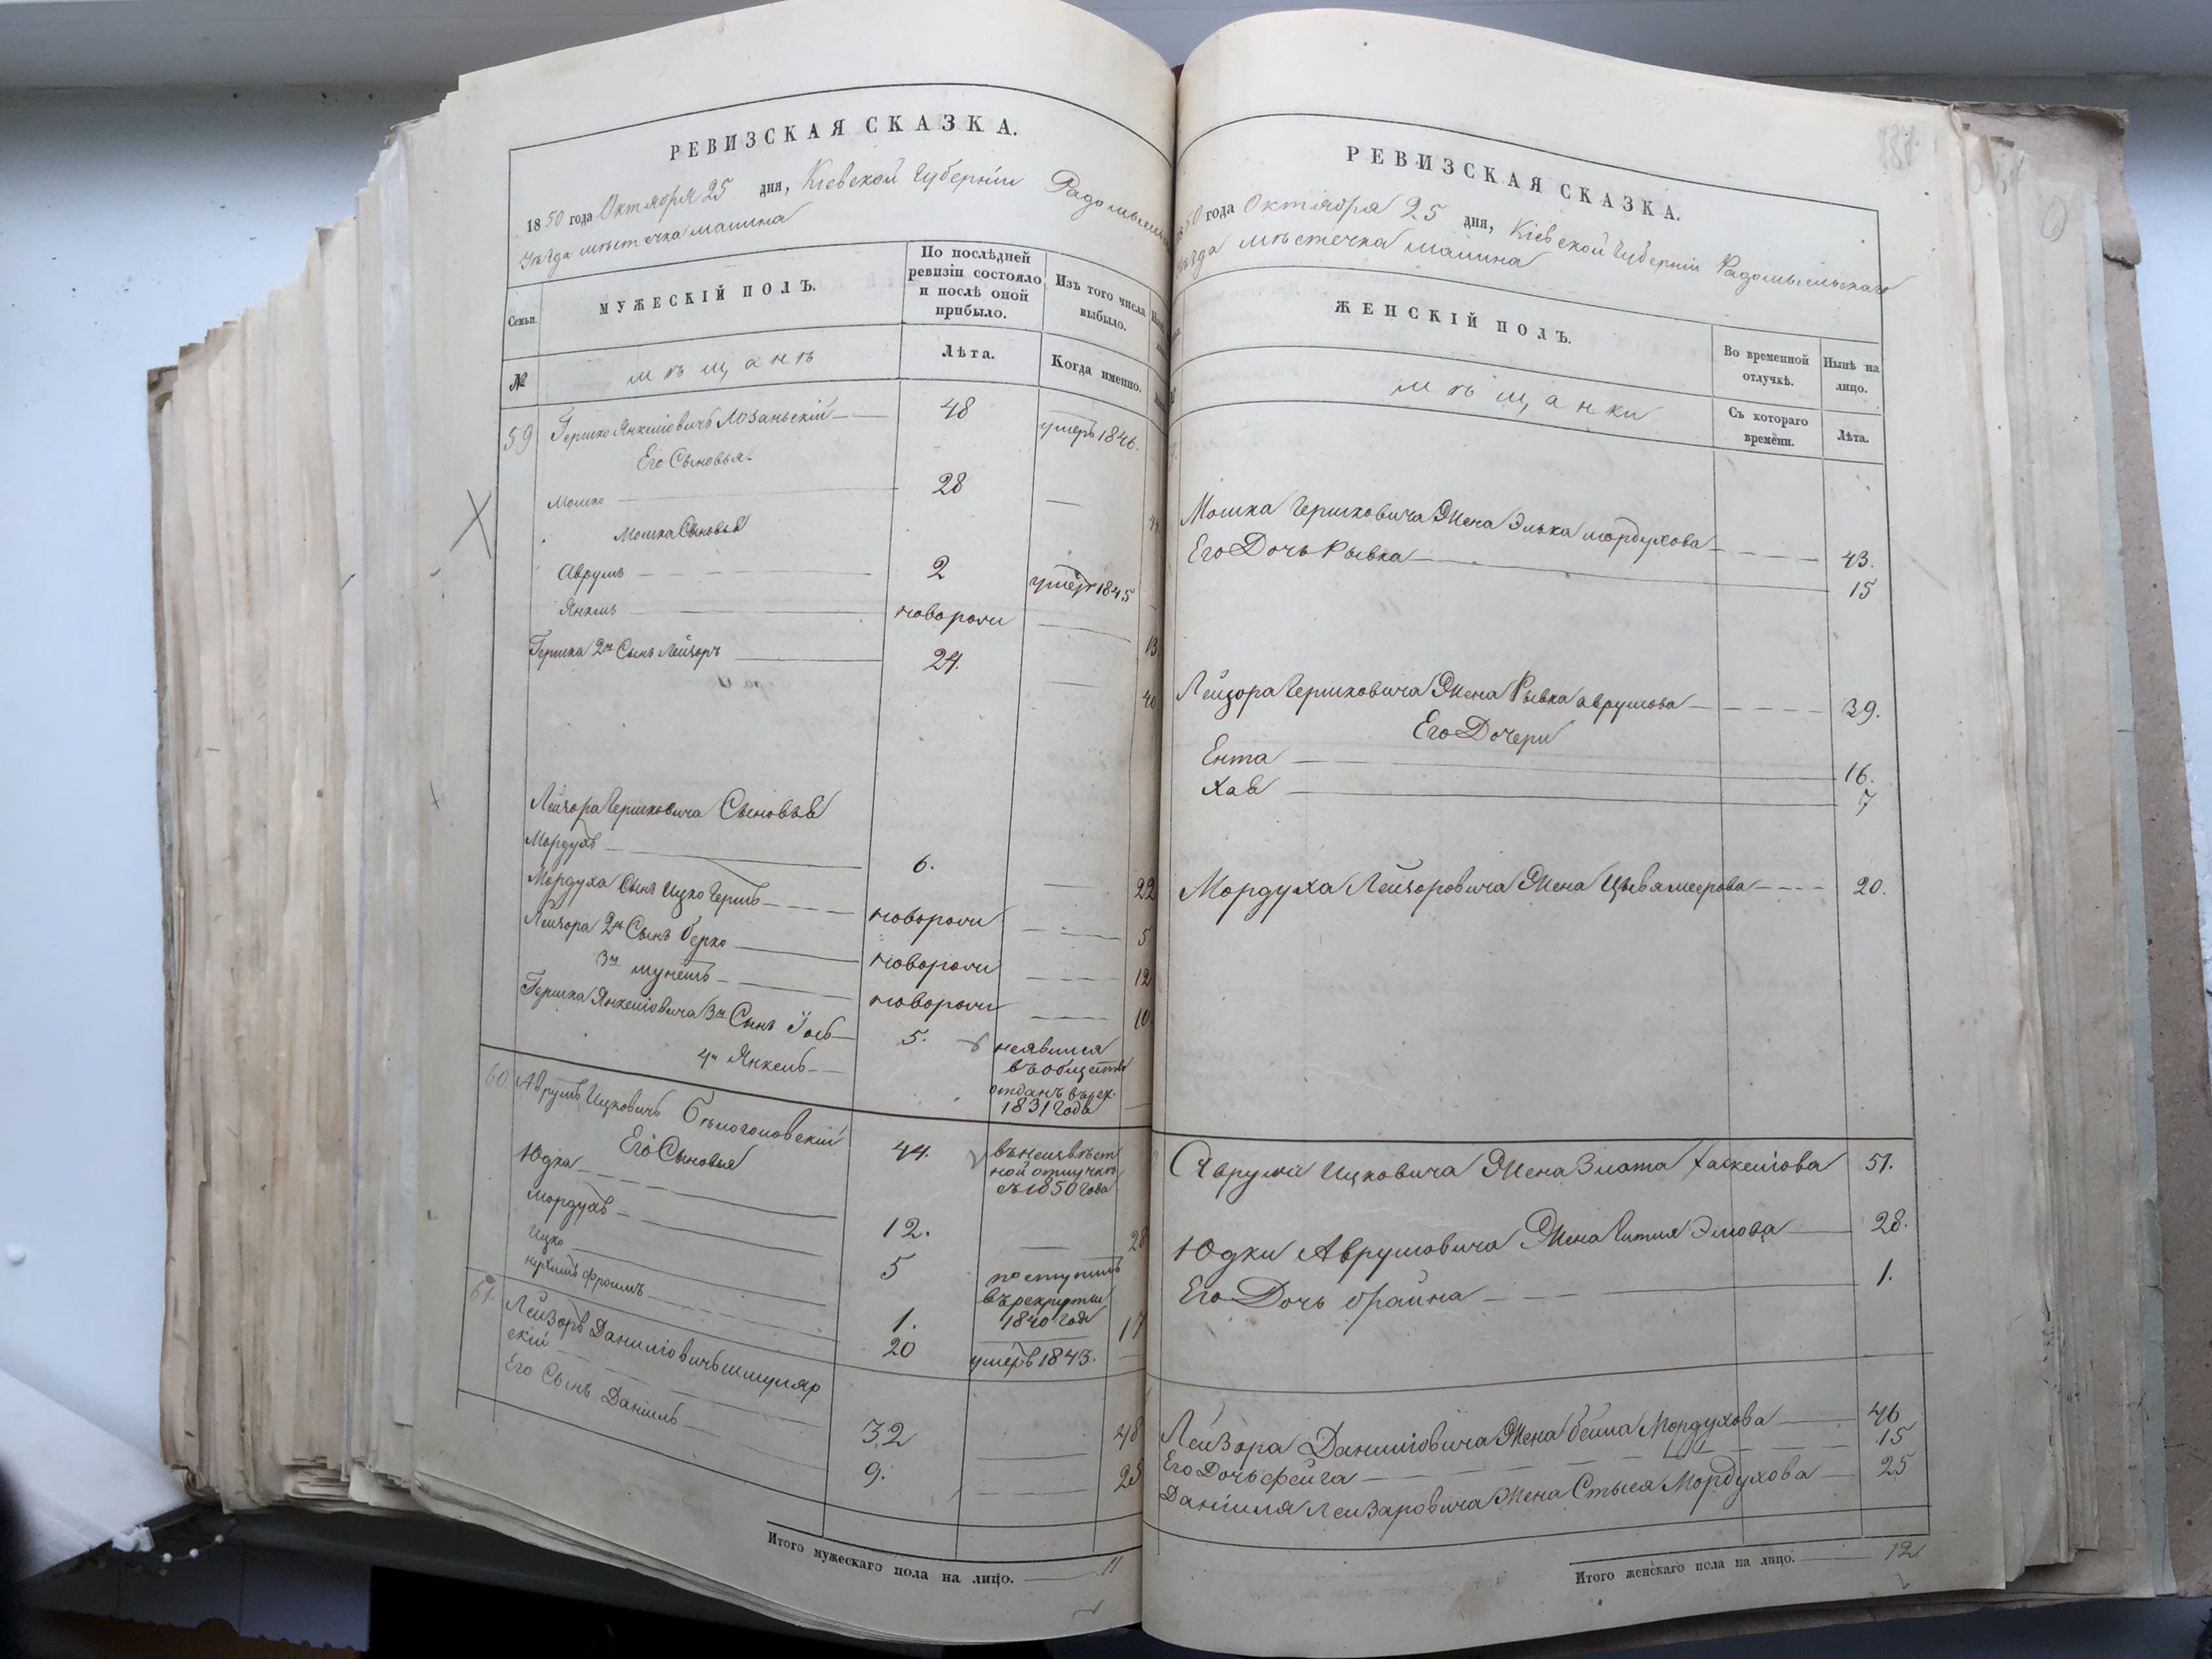 РЕВИЗСКАЯ СКАЗКА.
1850 года Октября 25 дня, Кіевской Губерніи Радомысльск
Уѣзда мѣстечка малина
Семьи.
МУЖЕСКІЙ ПОЛЪ.
По послѣдней ревизіи состояло и послѣ оной прибыло.
Изъ того числа выбыло.
№
мѣщанѣ
Лѣта.
Когда именно.
59 Гершко Янкеліовичъ Лозаньскій 48 умеръ 1846.
Его Сыновья
Мошко 28 — 44
Мошка Сыновья
Аврумъ 2 умеръ 1845
Янкель новорожи 13.
Гершка 2й Сынъ Лейзоръ 24. — 40
Лейзора Гершковича Сыновья
Мордухъ 6. — 22
Мордуха Сынъ Ицко Гершъ новорожи 5
Лейзора 2й Сынъ берко новорожи 12
3й мунешъ новорожи 10
Гершка Янкеліовича 3й Сынъ Іось 5. неявился
въ обществѣ
4й Янкель отданъ въ рек.
1831 года
60. Аврумъ Ицковичъ Бѣлоголовскій 44. въ неизвѣст
ной отлучкѣ
съ 1850 года
Его Сыновья
Юдка 12. — 28
Мордухъ 5 поступилъ
въ рекруты
1840 года
Ицко 1. 17
нухимъ фроимъ 20 умеръ 1843.
61. Лейзоръ Даниліовичъ шмуляр
скій 32 — 48
Его Сынъ Даніиль 9. — 25
Итого мужескаго пола на лицо. 11
РЕВИЗСКАЯ СКАЗКА.
1850 года Октября 25 дня, Кіевской Губерніи Радомысльскаго
Уѣзда мѣстечка малина
ЖЕНСКІЙ ПОЛЪ.
Во временной отлучкѣ.
Нынѣ на лицо.
мѣщанки
Съ котораго времени.
Лѣта.
Мошка Гершковича Жена Элька мордухова 43.
Его Дочь Рывка 15
Лейзора Гершковича Жена Рывка аврумова 39.
Его Дочери
Ента 16.
Хая 7
Мордуха Лейзоровича Жена Цывя меерова 20.
Аврума Ицковича Жена Злата Хаскеліова 51.
Юдки Аврумовича Жена Гитля Элиова 28.
Его Дочь браина 1.
Лейзора Даниліовича Жена бейла Мордухова 46
Его Дочь фейга 15
Даніиля Лейзаровича Жена Стыся Мордухова 25
Итого женскаго пола на лицо. 12